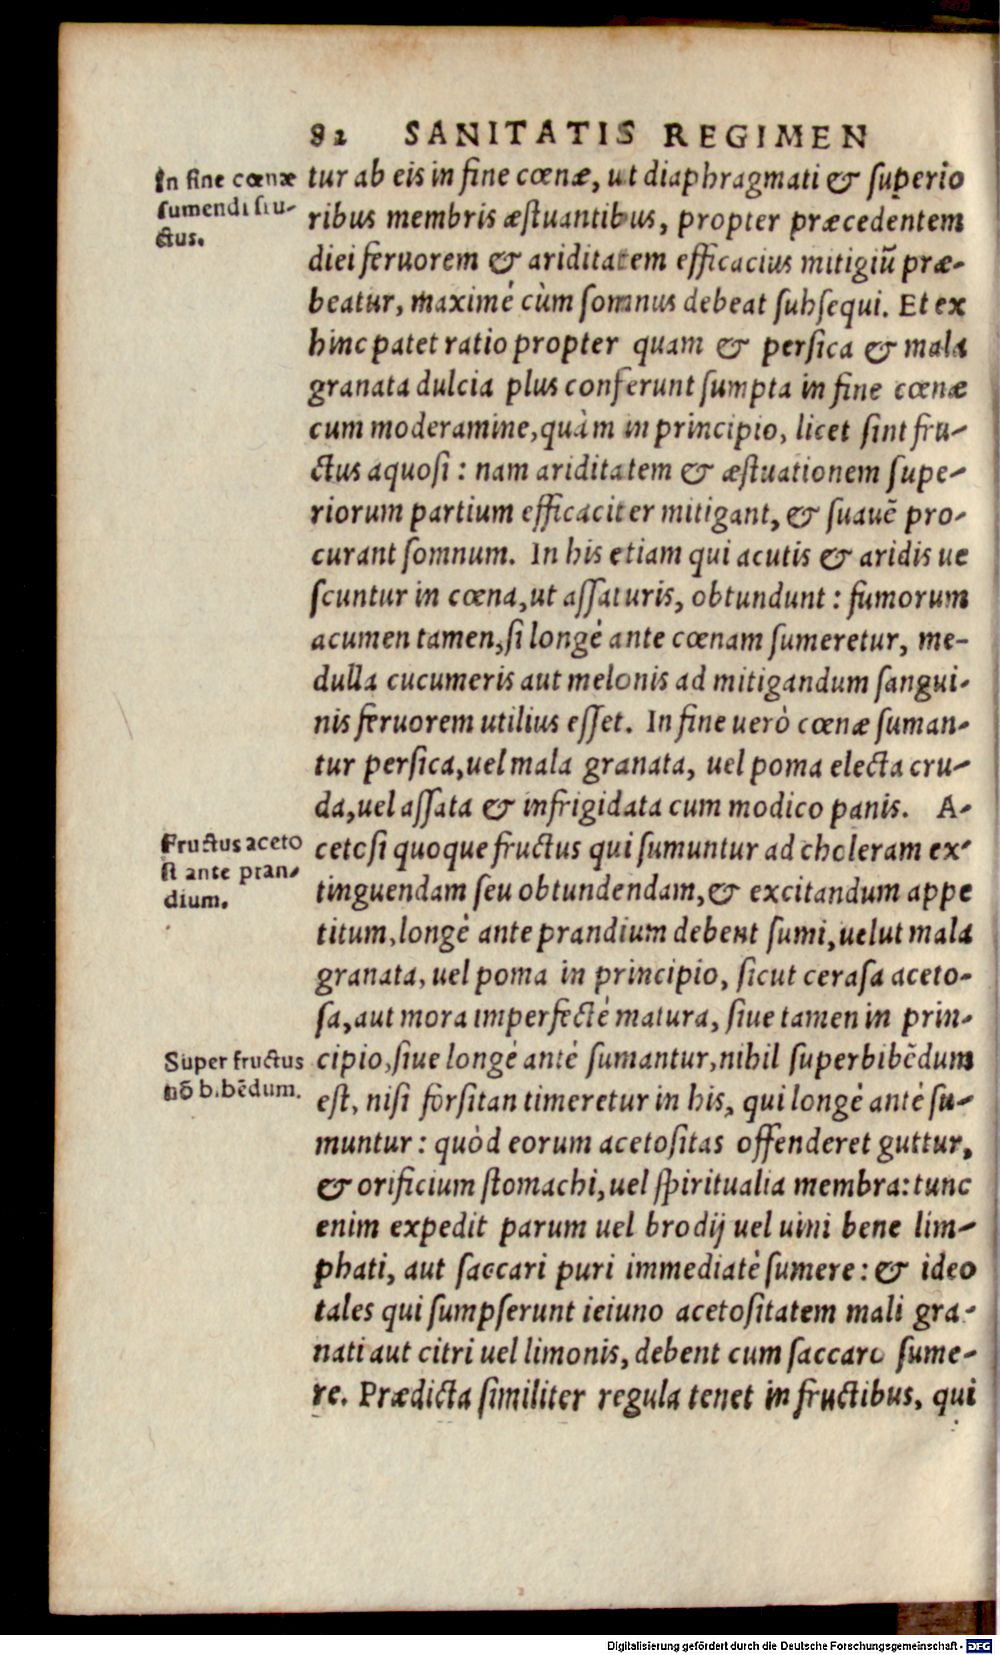 82 SANITATIS REGIMEN
In fine cœnæ
sumendi fru-
ctus.
tur ab eis in fine cœnæ, ut diaphragmati & superio
ribus membris æstuantibus, propter præcedentem
diei feruorem & ariditatem efficacius mitigiũ præ-
beatur, maximé cùm somnus debeat subsequi. Et ex
hinc patet ratio propter quam & persica & mala
granata dulcia plus conferunt sumpta in fine cœnæ
cum moderamine, quàm in principio, licet sint fru-
ctus aquosi: nam ariditatem & æstuationem supe-
riorum partium efficaciter mitigant, & suauẽ pro-
curant somnum. In his etiam qui acutis & aridis ue
scuntur in cœna, ut assaturis, obtundunt: fumorum
acumen tamen, si longé ante cœnam sumeretur, me-
dulla cucumeris aut melonis ad mitigandum sangui-
nis feruorem utilius esset. In fine uerò cœnæ suman-
tur persica, uel mala granata, uel poma electa cru-
da, uel assata & infrigidata cum modico panis. A-
Fructus aceto
si ante pran-
dium.
cetosi quoque fructus qui sumuntur ad choleram ex-
tinguendam seu obtundendam, & excitandum appe
titum, longè ante prandium debent sumi, uelut mala
granata, uel poma in principio, sicut cerasa aceto-
sa, aut mora imperfecté matura, siue tamen in prin-
Super fructus
nõ bibẽdum.
cipio, siue longé anté sumantur, nihil superbibẽdum
est, nisi forsitan timeretur in his, qui longé anté su-
muntur: quòd eorum acetositas offenderet guttur,
& orificium stomachi, uel spiritualia membra: tunc
enim expedit parum uel brodij uel uini bene lim-
phati, aut saccari puri immediatè sumere: & ideo
tales qui sumpserunt ieiuno acetositatem mali gra-
nati aut citri uel limonis, debent cum saccaro sume-
re. Prædicta similiter regula tenet in fructibus, qui
Digitalisierung gefördert durch die Deutsche Forschungsgemeinschaft - DFG